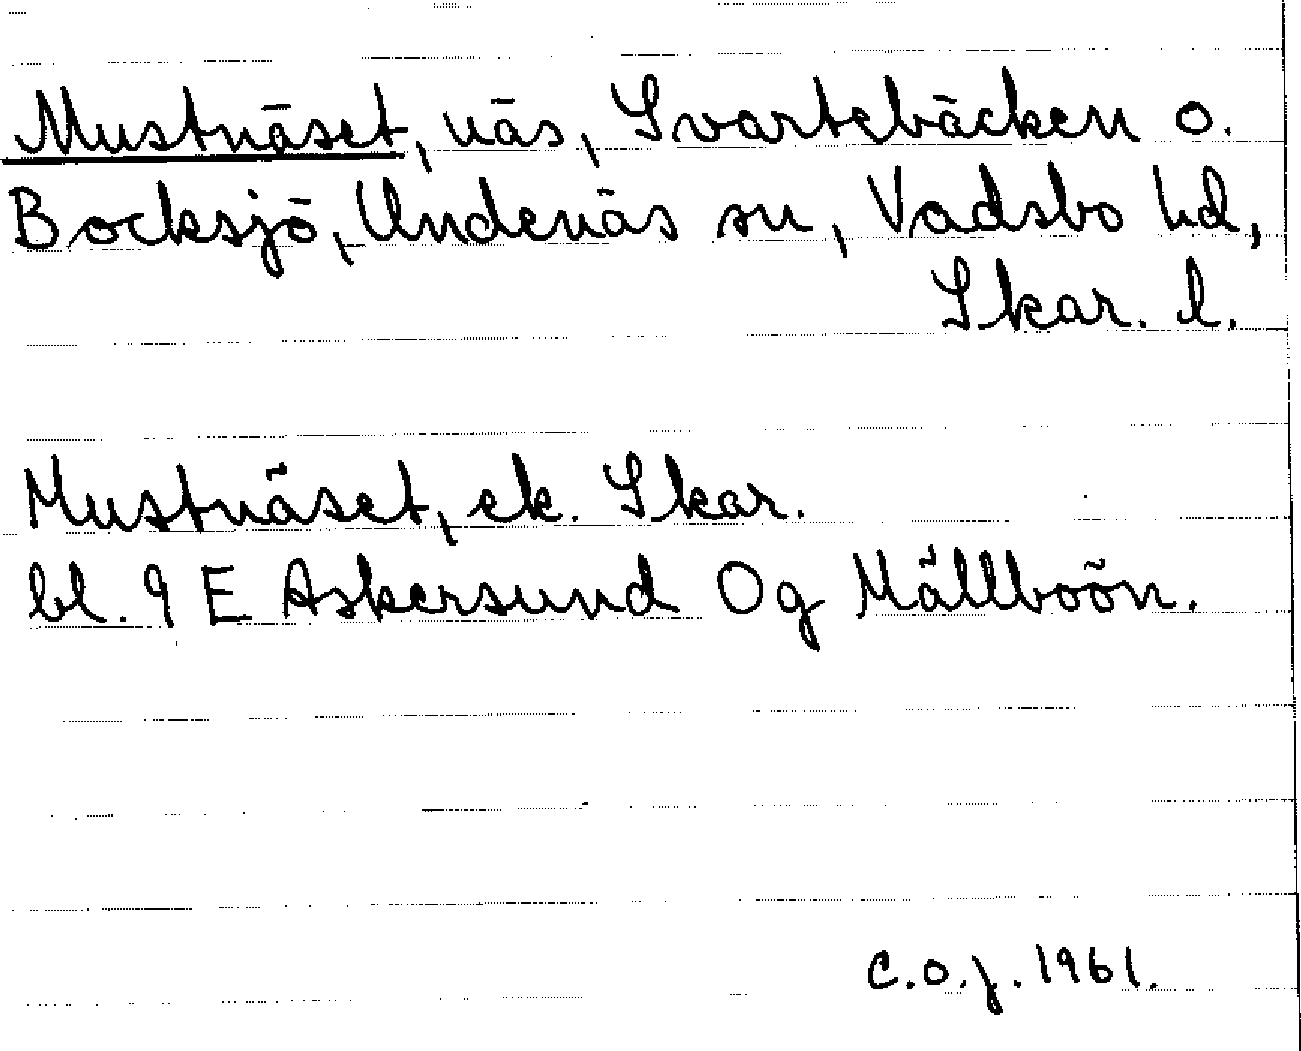 Mustnäset, näs, Svartebäcken o.
Bocksjö, Undenäs sn, Vadsbo hd,
Skar. l.
Mustnäset, ek. Skar.
bl. 9 E Askersund Og Mållboön.
C.O.J. 1961.